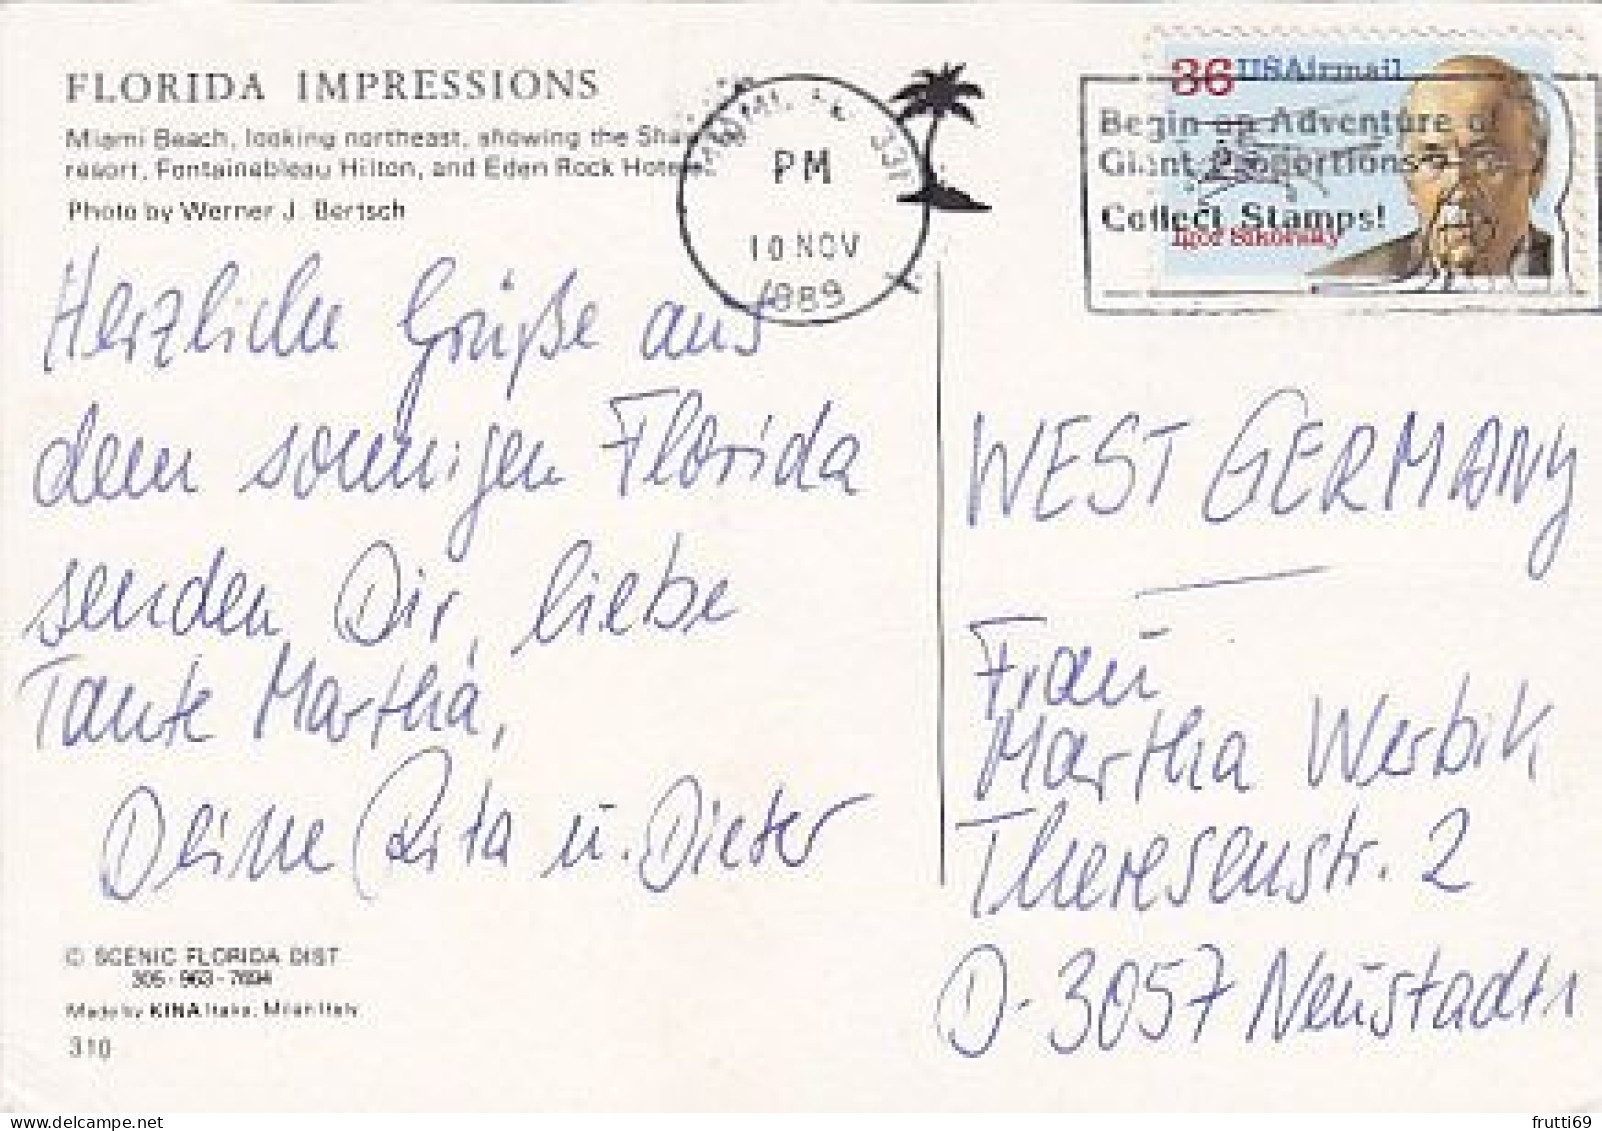 FLORIDA IMPRESSIONS
Miami Beach, looking northeast, showing the
resort, Fontainebleau Hilton, and Eden Rock
Photo by Werner J. Bertsch
MIAMI, FL 331
PM
10 NOV
1989
36 USAirmail
Igor Sikorsky
Begin an Adventure of
Giant Proportions
Collect Stamps!
Herzliche Grüße aus
dem sonnigen Florida
senden Dir, liebe
Tante Martha,
Deine Rita u. Dieter
WEST GERMANY
Frau
Martha Werbik
Theresenstr. 2
D-3057 Neustadt 1
© SCENIC FLORIDA DIST
305-963-7694
Made by KINA Italia, Milan Italy
310
frutti69